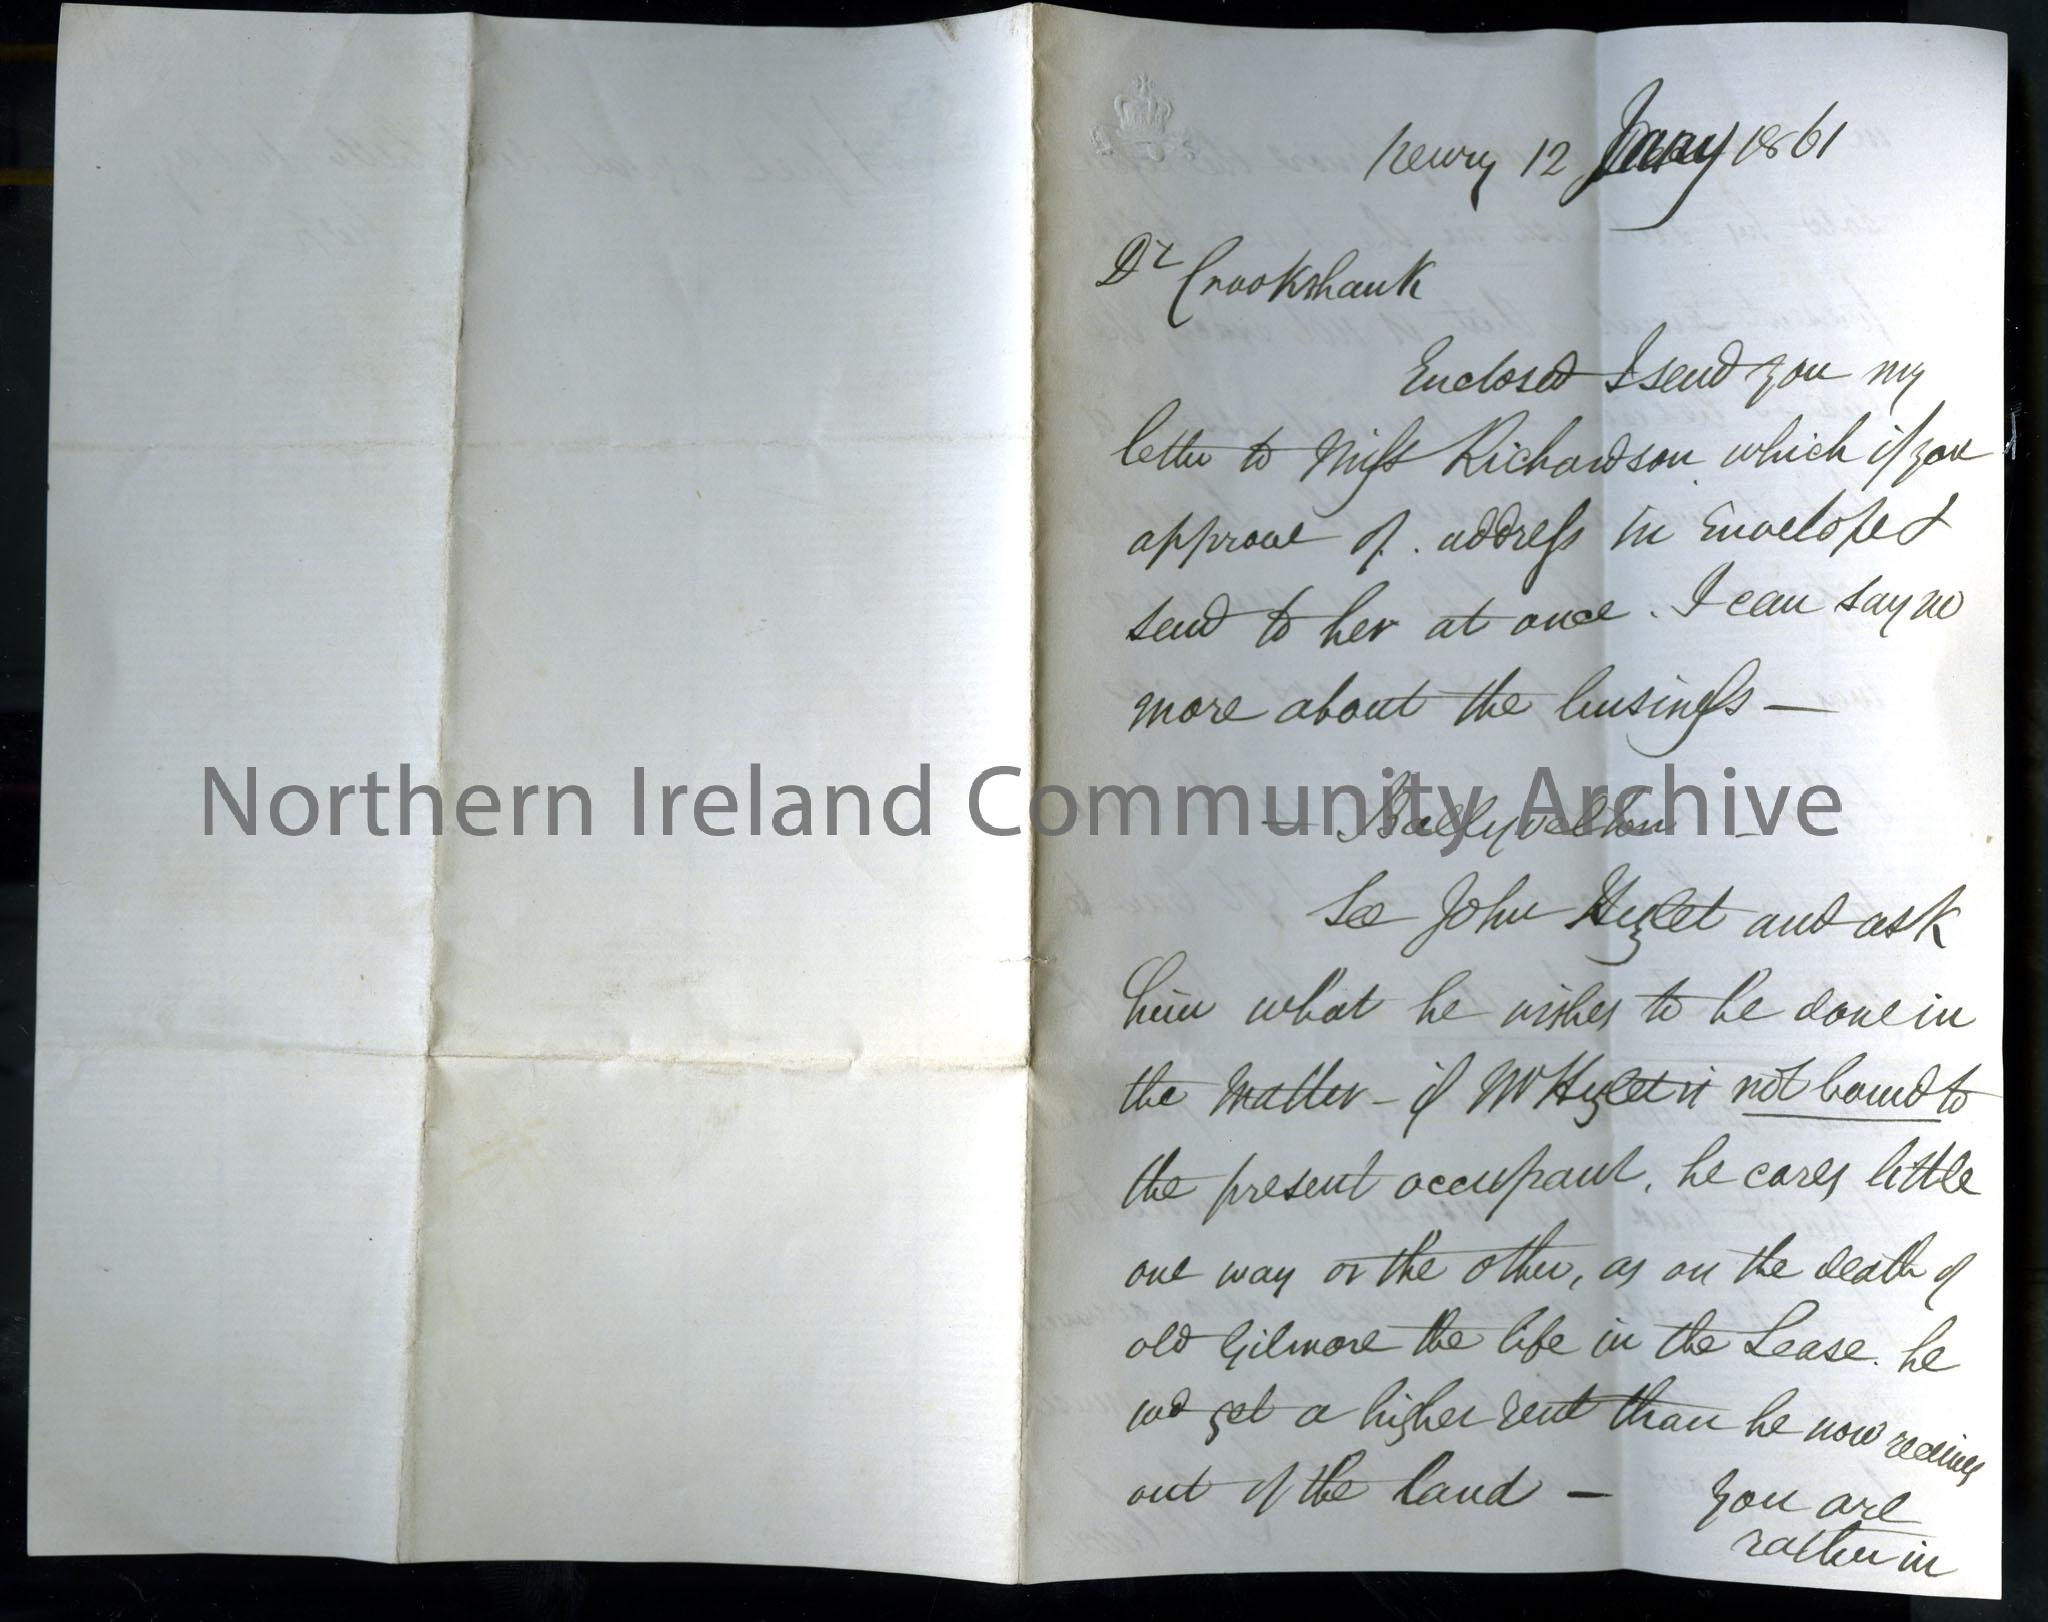 Newry 12 Jany 1861
Dr Crookshank
Enclosed I send you my
letter to Miss Richardson which if you
approve of. address in Envelope &
send to her at once. I can say no
more about the business —
— Ballyvelton —
See John Hezlet and ask
him what he wishes to be done in
the Matter – if Mr Hezlet is not bound to
the present occupant, he cares little
one way or the other, as on the death of
old Gilmore the life in the Lease. he
wd get a higher rent than he now receives
out of the land — You are
rather in
Northern Ireland Community Archive